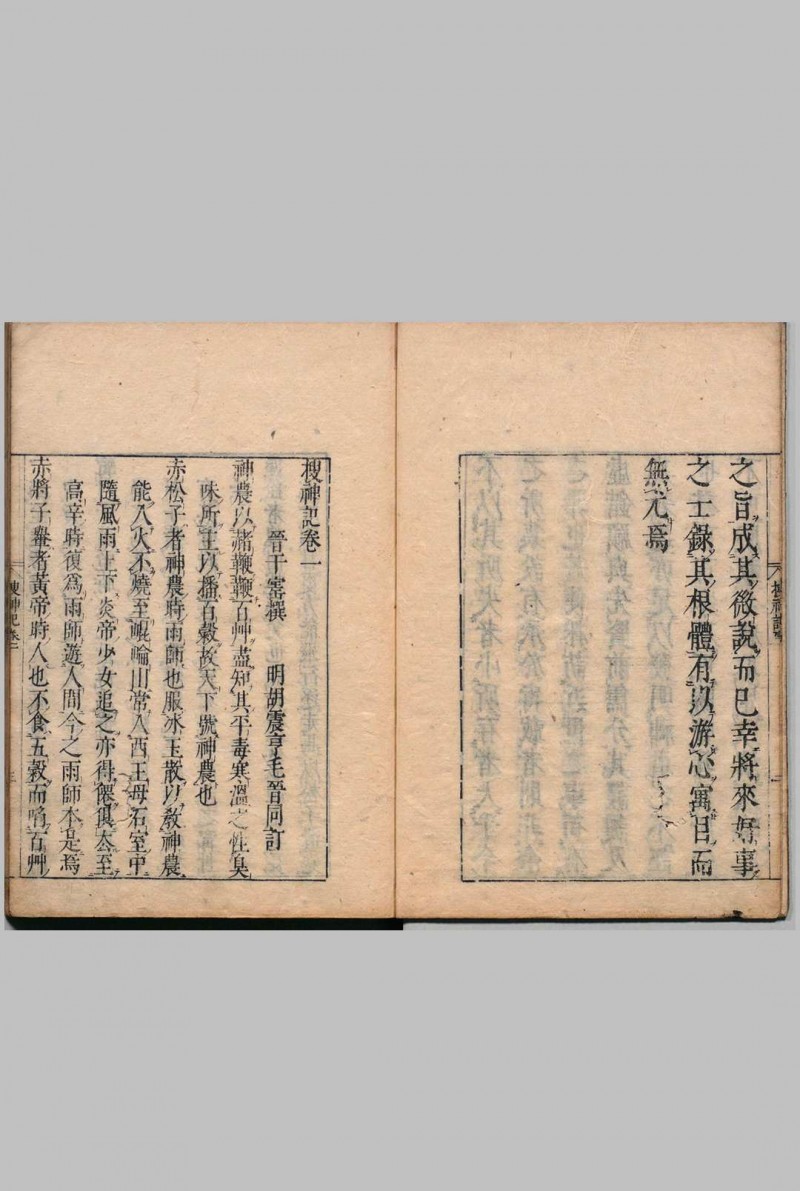 之旨成其微說而已幸將來好事
之士錄其根體有以游心寓目而
無尤焉
搜神記卷一
晉干寶撰　明胡震亨毛晉同訂
神農以赭鞭鞭百艸盡知其平毒寒溫之性臭
味所主以播百穀故天下號神農也
赤松子者神農時雨師也服冰玉散以敎神農
能入火不燒至崐崘山常入西王母石室中
隨風雨上下炎帝少女追之亦得僊俱去至
高辛時復爲雨師遊人間今之雨師本是焉
赤將子轝者黃帝時人也不食五穀而啗百艸